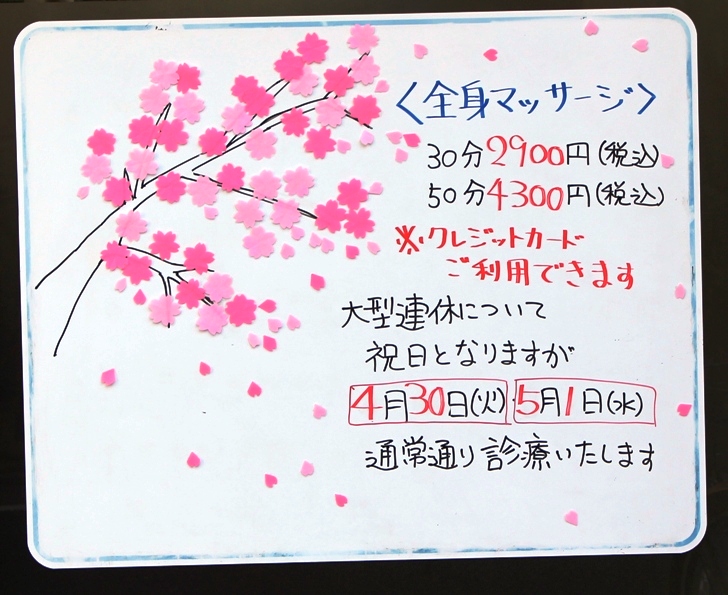 〈全身マッサージ〉
30分2900円(税込)
50分4300円(税込)
※クレジットカード
ご利用できます
大型連休について
祝日となりますが
4月30日(火)・5月1日(水)
通常通り診療いたします